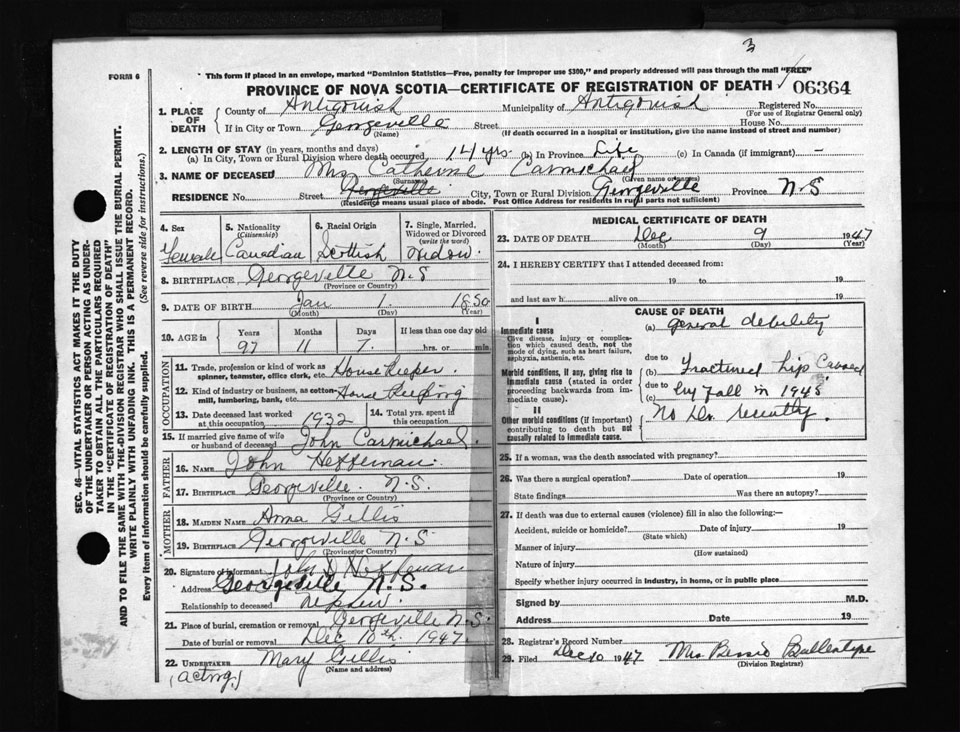 3
FORM 6
This form if placed in an envelope, marked "Dominion Statistics—Free, penalty for improper use $300," and properly addressed will pass through the mail "FREE"
PROVINCE OF NOVA SCOTIA—CERTIFICATE OF REGISTRATION OF DEATH
06364
1. PLACE OF DEATH
County of Antigonish Municipality of Antigonish Registered No.
(For use of Registrar General only)
If in City or Town Georgeville Street House No.
(Name) (If death occurred in a hospital or institution, give the name instead of street and number)
2. LENGTH OF STAY (in years, months and days)
(a) In City, Town or Rural Division where death occurred 14 yrs (b) In Province Life (c) In Canada (if immigrant) —
3. NAME OF DECEASED Mrs Catherine Carmichael
(Surname) (Given name or names)
RESIDENCE No. Street Georgeville City, Town or Rural Division Georgeville Province N.S
(Residence means usual place of abode. Post Office Address for residents in rural parts not sufficient)
4. Sex
Female
5. Nationality
(Citizenship)
Canadian
6. Racial Origin
Scottish
7. Single, Married, Widowed or Divorced
(write the word)
Widow
8. BIRTHPLACE Georgeville N.S
(Province or Country)
9. DATE OF BIRTH Jan 1. 1850
(Month) (Day) (Year)
10. AGE in Years Months Days If less than one day old
97 11 7 hrs. or min.
OCCUPATION
11. Trade, profession or kind of work as spinner, teamster, office clerk, etc. House Keeper.
12. Kind of industry or business, as cotton-mill, lumbering, bank, etc. House Keeping
13. Date deceased last worked at this occupation 1932
14. Total yrs. spent in this occupation
15. If married give name of wife or husband of deceased John Carmichael.
FATHER
16. NAME John Heffernan.
17. BIRTHPLACE Georgeville. N.S.
(Province or Country)
MOTHER
18. MAIDEN NAME Anna Gillis
19. BIRTHPLACE Georgeville N.S
(Province or Country)
20. Signature of informant John D Heffernan
Address Georgeville N.S.
Relationship to deceased Nephew.
21. Place of burial, cremation or removal Georgeville N.S.
Date of burial or removal Dec 10th. 1947.
22. UNDERTAKER Mary Gillis
(Name and address)
(acting.)
MEDICAL CERTIFICATE OF DEATH
23. DATE OF DEATH Dec 9 1947
(Month) (Day) (Year)
24. I HEREBY CERTIFY that I attended deceased from:
19 to 19
and last saw h alive on 19
CAUSE OF DEATH
I
Immediate cause
Give disease, injury or complication which caused death, not the mode of dying, such as heart failure, asphyxia, asthenia, etc.
(a) general debility
Morbid conditions, if any, giving rise to immediate cause (stated in order proceeding backwards from immediate cause).
due to
(b) Fractured Hip Caused
due to
(c) by Fall in 1945
II
Other morbid conditions (if important) contributing to death but not causally related to immediate cause.
No Dr. recently.
25. If a woman, was the death associated with pregnancy?
26. Was there a surgical operation? Date of operation 19
State findings Was there an autopsy?
27. If death was due to external causes (violence) fill in also the following:—
Accident, suicide or homicide? Date of injury 19
(State which)
Manner of injury
(How sustained)
Nature of injury
Specify whether injury occurred in industry, in home, or in public place
Signed by M.D.
Address Date 19
28. Registrar's Record Number
29. Filed Dec 10 1947 Mrs Bessie Ballentyne
(Division Registrar)
SEC. 46—VITAL STATISTICS ACT MAKES IT THE DUTY
OF THE UNDERTAKER OR PERSON ACTING AS UNDER-
TAKER TO OBTAIN ALL THE PARTICULARS REQUIRED
IN THE "CERTIFICATE OF REGISTRATION OF DEATH"
AND TO FILE THE SAME WITH THE DIVISION REGISTRAR WHO SHALL ISSUE THE BURIAL PERMIT.
WRITE PLAINLY WITH UNFADING INK. THIS IS A PERMANENT RECORD.
Every item of information should be carefully supplied. (See reverse side for instructions.)